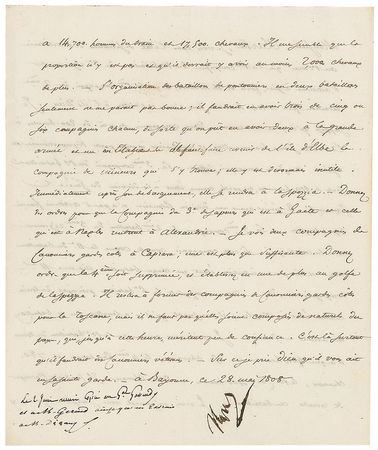 à 14,700. hommes du train et 17,500. chevaux. Il me semble que la
proportion n'y est pas et qu'il devrait y avoir au moins 2,000 chevaux
de plus. — L'organisation des bataillons de pontonniers en deux bataillons
seulement ne me parait pas bonne; il faudrait en avoir trois de cinq ou
six compagnies chacun, de sorte qu'on put en avoir deux à la grande
armée et un en Italie. faire venir de l'ile d'Elbe la
compagnie de mineurs qui s'y trouve; elle y est désormais inutile.
Immédiatement après son débarquement, elle se rendra à la Spezzia. — Donnez
des ordres pour que la compagnie du 3e de sapeurs qui est à Gaëte et celle
qui est à Naples rentrent à Alexandrie. — Je vois deux compagnies de
Canonniers gardes côtes à Capraia; une est plus que suffisante. Donnez
ordre que la 4eme soit supprimée et établissez en une de plus au golfe
de la Spezzia. Il restera à former des compagnies de Canonniers gardes côtes
pour la Toscane, mais il ne faut pas qu'elles soient composées de naturels du
pays, qui jusqu'à cette heure, méritent peu de confiance. C'est là surtout
qu'il faudrait des Canonniers vétérans. — Sur ce je prie dieu qu'il vous ait
en sa sainte garde. — à Bayonne, ce 28. mai 1808